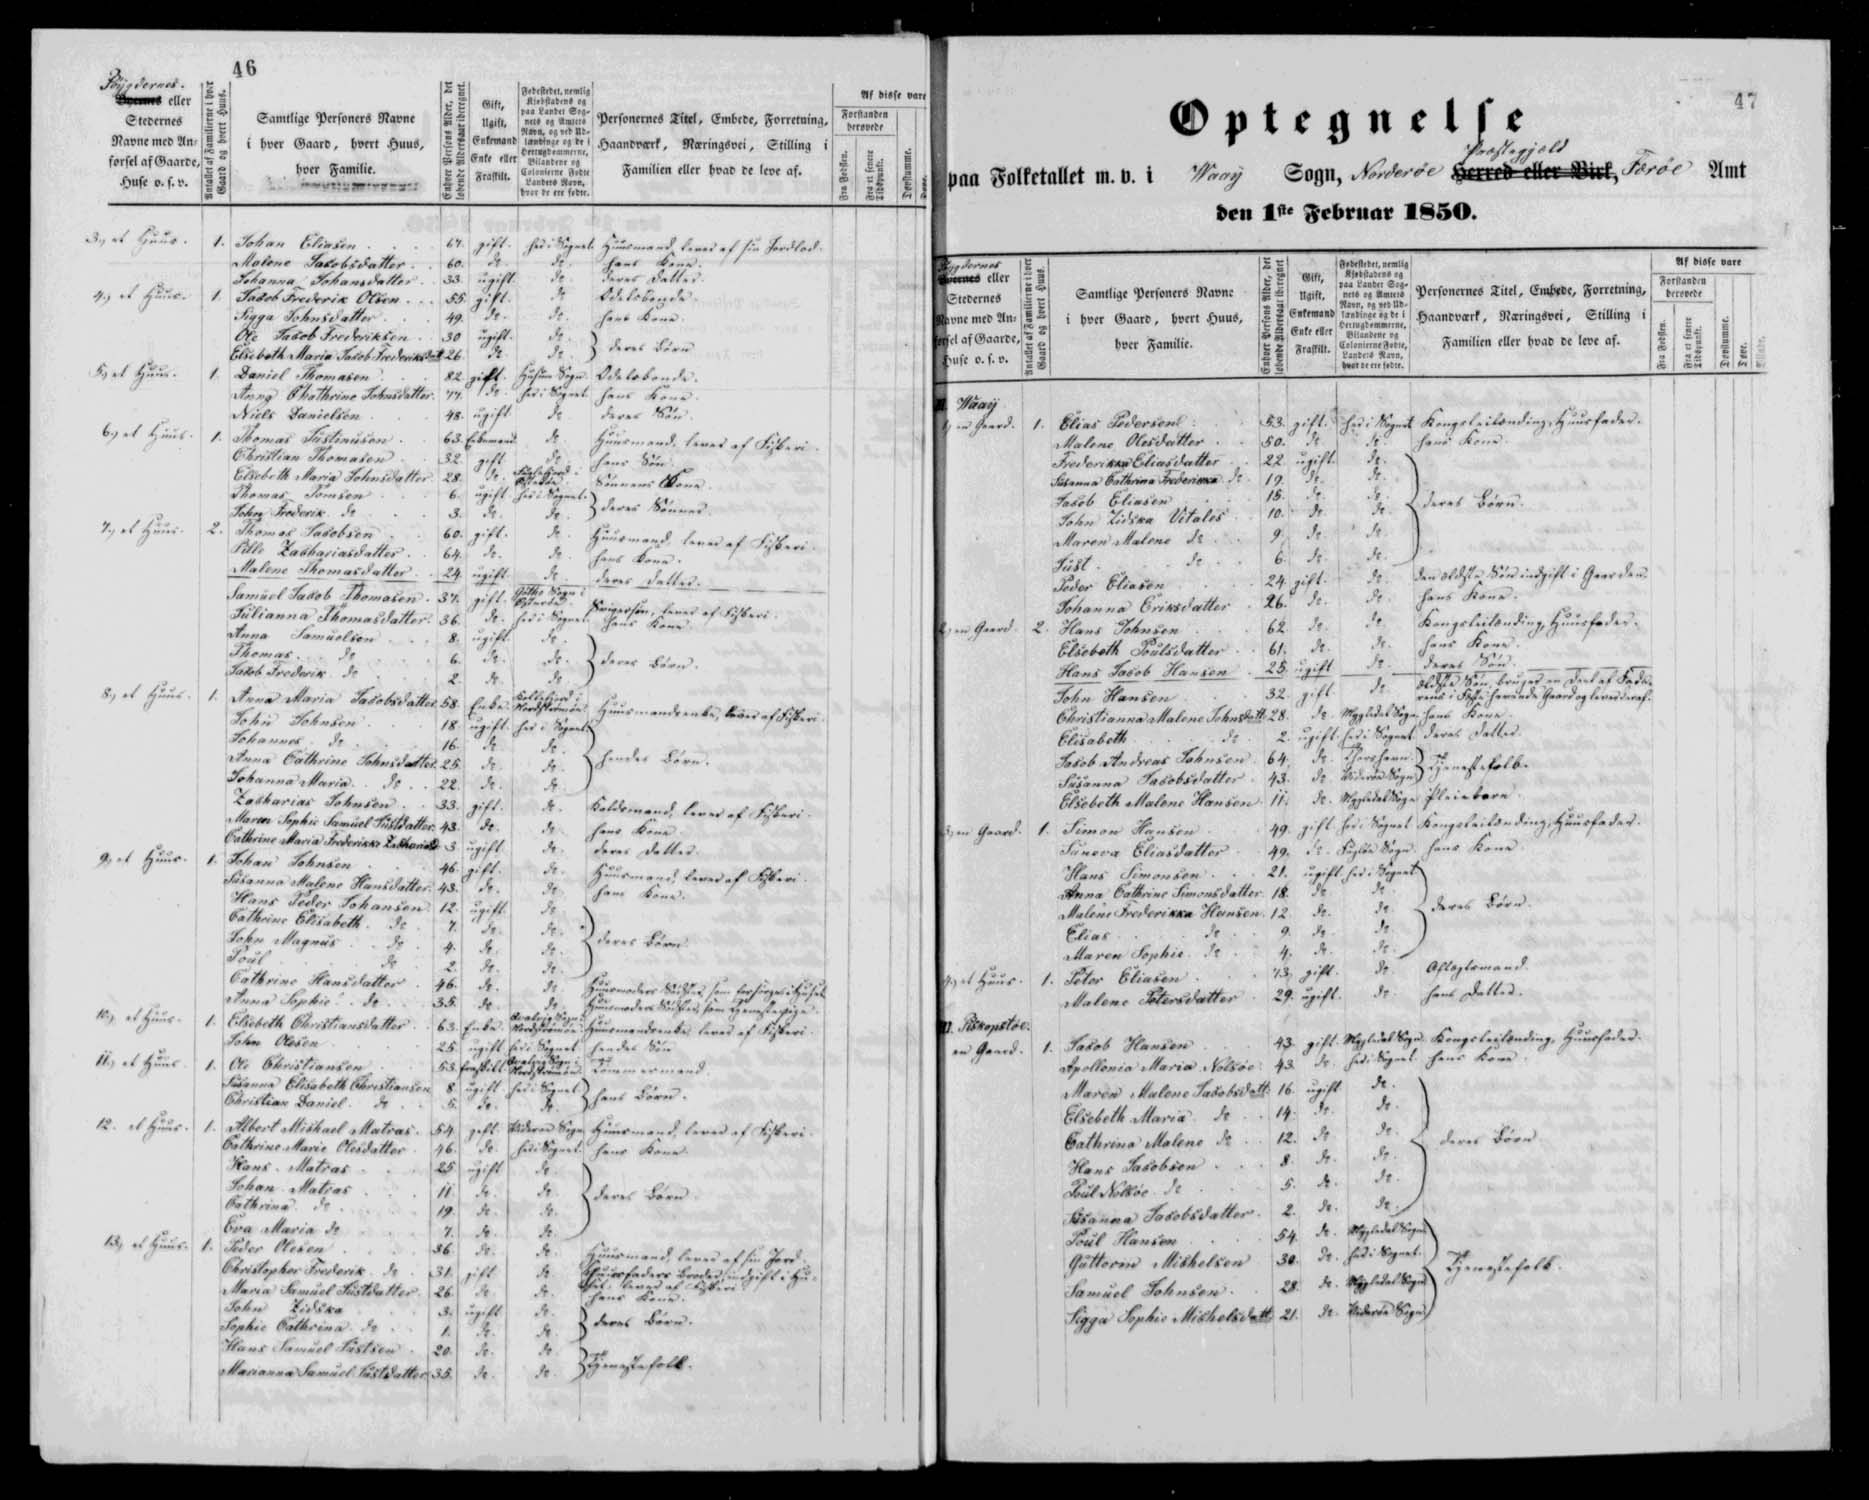 46
Bÿgdernes.
Byernes eller
Stedernes
Navne med An-
førsel af Gaarde,
Huse o. s. v.
Antallet af Familierne i hver
Gaard og hvert Huus.
Samtlige Personers Navne
i hver Gaard, hvert Huus,
hver Familie.
Enhver Persons Alder, det
løbende Aldersaar iberegnet.
Gift,
Ugift,
Enkemand
Enke eller
Fraskilt.
Fødestedet, nemlig
Kjøbstadens og
paa Landet Sog-
nets og Amtets
Navn, og ved Ud-
lændinge og de i
Hertugdømmerne,
Bilandene og
Colonierne Fødte
Landets Navn,
hvor de ere fødte.
Personernes Titel, Embede, Forretning,
Haandværk, Næringsvei, Stilling i
Familien eller hvad de leve af.
Af disse vare
Forstanden
berøvede
Fra Fødslen.
Fra et senere
Tidspunkt.
Døvstumme.
Døve.
3, et Huus. 1. Johan Eliasen 67. gift. her i Sognet. Huusmand, lever af sin Jordlod.
Malene Jacobsdatter 60. do. do. hans Kone.
Johanna Johansdatter 33. ugift. do. deres Datter.
4, et Huus. 1. Jacob Frederik Olsen 55. gift. do. Odelsbonde.
Sigga Johnsdatter 49. do. do. hans Kone.
Ole Jacob Frederiksen 30 ugift. do. deres Børn
Elsebeth Maria Jacob Frederiksdatt. 26. do. do.
5, et Huus. 1. Daniel Thomasen 82. gift. Huusum Sogn. Odelsbonde.
Anna Chathrine Johnsdatter. 77. do. her i Sognet hans Kone.
Niels Danielsen 48. ugift. do. deres Søn.
6, et Huus. 1. Thomas Justinusen 63. Enkemand. do. Huusmand, lever af Fiskeri.
Christian Thomasen 32. gift. do. hans Søn
Elsebeth Maria Johnsdatter 28. do. Østerøe. Sønnens Kone.
Thomas Tomsen 6. ugift her i Sognet. deres Sønner
John Frederik do 3. do. do.
7, et Huus. 2. Thomas Jacobsen 60. gift. do. Huusmand, lever af Fiskeri.
Pille Zachariasdatter 64. do. do. hans Kone.
Malene Thomasdatter 24. ugift. do. deres Datter.
Samuel Jacob Thomasen 37. gift. Gøthe Sogn i Østerøe. Svigersøn, lever af Fiskeri.
Julianna Thomasdatter. 36. do. her i Sognet hans Kone
Anna Samuelsen 8. ugift. do. deres Børn.
Thomas do. 6. do. do.
Jacob Frederik do 2. do. do.
8, et Huus. 1. Anna Maria Jacobsdatter 58. Enke. Kollefjord i Nordstrømøe. Huusmandsenke, lever af Fiskeri.
John Johnsen 18. ugift. her i Sognet. hendes Børn.
Johannes do. 16. do. do.
Anna Cathrine Johnsdatter. 25. do. do.
Johanna Maria do 22. do. do.
Zacharias Johnsen 33. gift. do. lever af Fiskeri.
Maren Sophie Samuel Justdatter. 43. do. do. hans Kone
Cathrine Maria Frederikke Zachariasd. 3 ugift do. deres Datter.
9, et Huus. 1. Johan Johnsen 46. gift. do. Huusmand, lever af Fiskeri.
Susanna Malene Hansdatter. 43. do. do. hans Kone.
Hans Peder Johansen 12. ugift. do. deres Børn.
Cathrine Elisabeth do 7. do. do.
John Magnus do 4. do. do.
Poul do 2. do. do.
Cathrine Hansdatter 46. do. do. Huusmoders Søster, som forsørges i Huset
Anna Sophie do 35. do. do. Huusmoders Søster, som Tjenestepige.
10, et Huus. 1. Elsebeth Christiansdatter 63. Enke. Qvalvig Sogn Nordstrømøe. Huusmandsenke, lever af Fiskeri.
John Olesen 25. ugift her i Sognet hendes Søn
11, et Huus 1. Ole Christiansen 53. fraskilt Qvalvig Sogn i Nordstrømøe. Tømmermand
Susanna Elisabeth Christiansen 8. ugift her i Sognet hans Børn.
Christian Daniel do 5. do. do.
12. et Huus. 1. Albert Mishael Matras 54. gift. Viderøe Sogn Huusmand, lever af Fiskeri.
Cathrine Marie Olesdatter 46. do. her i Sognet. hans Kone.
Hans Matras 25 ugift do. deres Børn.
Johan Matras 11 do. do.
Cathrina do 19. do. do.
Eva Maria do 7. do. do.
13, et Huus. 1. Peder Olesen 36. do. do. Huusmand, lever af sin Jord.
Christopher Frederik do 31. gift do. Huusfaders Broder, indgift i Hu-
Maria Samuel Justdatter 26. do. do. set. lever af Fiskeri. hans Kone.
John Zidska 3. ugift do. deres Børn.
Sophie Cathrina do 1. do. do.
Hans Samuel Justsen 20. do. do. Tjenestefolk.
Marianna Samuel Justdatter 35. do. do.
47
Optegnelse
Præstegjeld
paa Folketallet m. v. i Waaÿ Sogn, Norderøe Herred eller Birk, Færøe Amt
den 1ste Februar 1850.
Bygdernes
Byernes eller
Stedernes
Navne med An-
førsel af Gaarde,
Huse o. s. v.
Antallet af Familierne i hver
Gaard og hvert Huus.
Samtlige Personers Navne
i hver Gaard, hvert Huus,
hver Familie.
Enhver Persons Alder, det
løbende Aldersaar iberegnet
Gift,
Ugift,
Enkemand
Enke eller
Fraskilt.
Fødestedet, nemlig
Kjøbstadens og
paa Landet Sog-
nets og Amtets
Navn, og ved Ud-
lændinge og de i
Hertugdømmerne,
Bilandene og
Colonierne Fødte,
Landets Navn,
hvor de ere fødte.
Personernes Titel, Embede, Forretning,
Haandværk, Næringsvei, Stilling i
Familien eller hvad de leve af.
Af disse vare
Forstanden
berøvede
Fra Fødslen.
Fra et senere
Tidspunkt.
Døvstumme.
Døve.
Waaÿ
1, en Gaard. 1. Elias Pedersen 53. gift. her i Sognet Kongsleilænding, Huusfader.
Malene Olesdatter 50. do. do. hans Kone.
Frederikka Eliasdatter 22 ugift. do. deres Børn.
Susanna Cathrina Frederikka do 19. do. do.
Jacob Eliasen 15. do. do.
John Zidska Vitales 10. do. do.
Maren Malene do 9. do. do.
Just do. 6. do. do.
Peder Eliasen 24. gift. do. den ældste Søn indgift i Gaarden.
Johanna Eriksdatter 26. do. do. hans Kone.
2, en Gaard. 2. Hans Johnsen 62 do. do. Kongsleilænding, Huusfader.
Elsebeth Poulsdatter 61. do. do. hans Kone.
Hans Jacob Hansen 25. ugift do. deres Søn.
John Hansen 32. gift. do. ældste Søn, bruger en Deel af Fade-
Christianna Malene Johnsdatt. 28. do. Myggledal Sogn. hans Kone.
Elisabeth do. 2. ugift her i Sognet deres Datter.
Jacob Andreas Johnsen 64. do. Thorshavn. Tjenestefolk.
Susanna Jacobsdatter 43. do. Viderøe Sogn
Elsebeth Malene Hansen 11. do. Myggledal Sogn Pleiebarn.
3, en Gaard. 1. Simon Hansen 49. gift her i Sognet Kongsleilænding, Huusfader.
Suneva Eliasdatter 49. do. Fugløe Sogn. hans Kone.
Hans Simonsen 21. ugift her i Sognet deres Børn.
Anna Cathrine Simonsdatter 18. do. do.
Malene Frederikka Hansen 12 do. do.
Elias do 9. do. do.
Maren Sophie do 4. do. do.
4, et Huus. 1. Peter Eliasen 73. gift. do. Aftægtsmand.
Malene Petersdatter 29. ugift. do. hans Datter.
Biskopstøe.
en Gaard. 1. Jacob Hansen 43. gift. Myggledal Sogn. Kongsleilænding, Huusfader.
Apollonia Maria Nolsøe 43. do. her i Sognet. hans Kone.
Maren Malene Jacobsdatt. 16. ugift do. deres Børn
Elsebeth Maria do 14. do. do.
Cathrina Malene do 12. do. do.
Hans Jacobsen 8. do. do.
Poul Nolsøe do 5. do. do.
Susanna Jacobsdatter 2. do. do.
Poul Hansen 54. do. Myggledal Sogn Tjenestefolk.
Guttorm Mishelsen 30. do. her i Sognet.
Samuel Johnsen 28. do. Myggledal Sogn
Sigga Sophie Mishelsdatt. 21. do. Viderøe Sogn